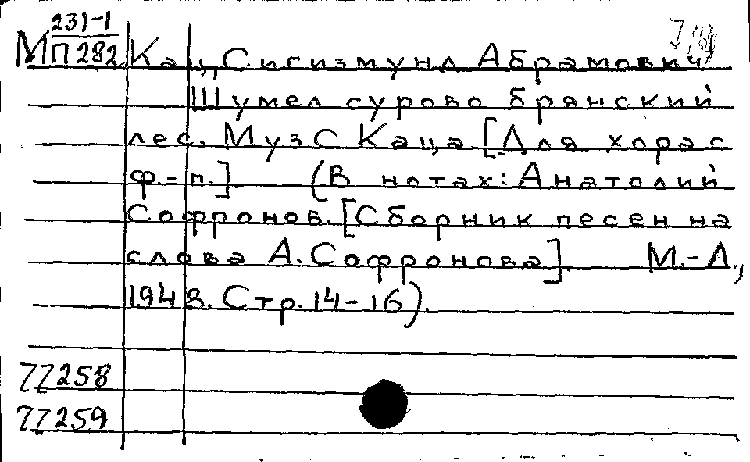 231-1
М П 282 Кац, Сигизмунд Абрамович
Шумел сурово брянский
лес. Муз С Каца [Для хора с
ф-п.] (В нотах: Анатолий
Софронов. [Сборник песен на
слова А. Софронова] М.-Л.,
1948. Стр. 14-16).
77258
77259